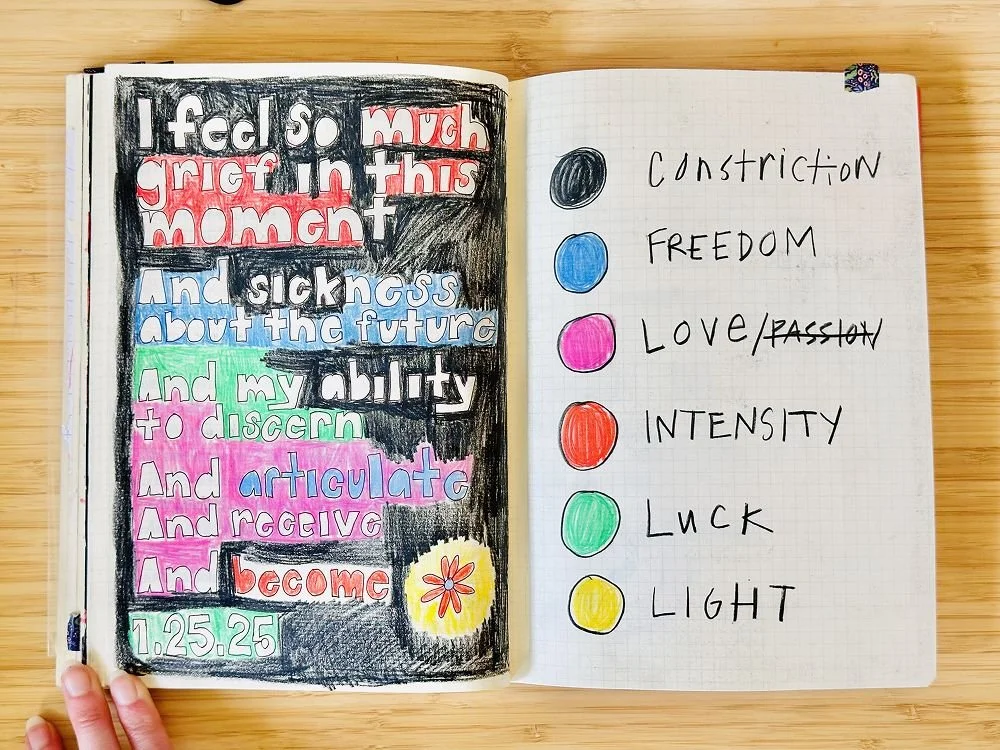 I feel so much
grief in this
moment
And sickness
about the future
And my ability
to discern
And articulate
And receive
And become
1.25.25
Constriction
FREEDOM
LOVE/PASSION/
INTENSITY
LUCK
LIGHT